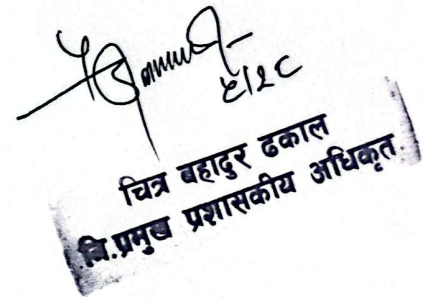 ९।२८
चित्र बहादुर ढकाल
नि.प्रमुख प्रशासकीय अधिकृत